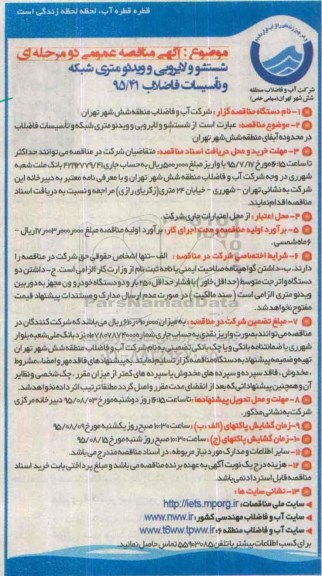 قطره قطره آب، لحظه لحظه زندگی است
موضوع : آگهی مناقصه عمومی دو مرحله ای
شستشو و لایروبی و ویدئو متری شبکه
و تأسیسات فاضلاب ۹۵/۴۱
شرکت آب و فاضلاب منطقه
شش شهر تهران (سهامی خاص)
۱- نام دستگاه مناقصه گزار : شرکت آب و فاضلاب منطقه شش شهر تهران
۲- موضوع مناقصه: عبارت است از شستشو و لایروبی و ویدئو متری شبکه و تأسیسات فاضلاب
در محدوده آبفای منطقه شش شهر تهران
۳- مهلت خرید و محل دریافت اسناد مناقصه: متقاضیان شرکت در مناقصه می توانند حداکثر
تا ساعت ۱۵:۴۵ مورخ ۹۵/۷/۱۷ با واریز مبلغ ۵۰۰/۰۰۰ ریال به حساب جاری ۴۲۹۲۷۷۹/۴۱ بانک ملت شعبه
شهرری در وجه شرکت آب و فاضلاب منطقه شش شهر تهران و با معرفی نامه معتبر به دبیرخانه این
شرکت به نشانی تهران - شهرری - خیابان ۲۴ متری (زکریای رازی) مراجعه و نسبت به دریافت اسناد
مناقصه اقدام نمایند.
۴- محل اعتبار : از محل اعتبارات جاری شرکت
۵- برآورد اولیه مناقصه و مدت اجرای کار: برآورد اولیه مناقصه مبلغ ریال -
۶ ماه شمسی.
۶- شرایط اختصاصی شرکت در مناقصه : الف -تنها اشخاص حقوقی حق شرکت در مناقصه را
دارند. ب-داشتن گواهینامه صلاحیت ایمنی یا نامه ثبت نام از وزارت کار الزامی است. ج- داشتن دو
دستگاه واتر جت متوسط (حداقل خاور) با فشار حداقل ۲۵۰ بار و دو دستگاه خودرو ون مجهز به دوربین
ویدئو متری الزامی است (سند مالکیت) در صورت عدم ارسال مدارک و مستندات پیشنهاد قیمت
مفتوح نخواهد شد.
۷- مبلغ تضمین شرکت در مناقصه : به میزان ریال می باشد که شرکت کنندگان در
مناقصه می توانند بصورت واریز نقدی به حساب جاری شماره نزد بانک ملی شعبه بلوار
شهرری یا ضمانتنامه بانکی و یا چک بانکی تضمینی به نام شرکت آب و فاضلاب منطقه شش شهر تهران
تهیه و ضمیمه پیشنهاد به دستگاه مناقصه گزار تسلیم نمایند. به پیشنهادهای فاقد مهر و امضاء، مشروط
، مخدوش ، فاقد سپرده و سپرده های مخدوش یا سپرده های کمتر از میزان مقرر ، چک شخصی و نظایر
آن و همچنین پیشنهاداتی که بعد از انقضای مدت مقرر واصل گردد مطلقا ترتیب اثر داده نخواهد شد.
۸- مهلت و محل تحویل پیشنهادها: تا ساعت ۱۵:۴۵ روز دوشنبه مورخ ۹۵/۰۸/۰۳ دبیرخانه مرکزی
شرکت به نشانی مذکور.
۹- زمان گشایش پاکتهای (الف ، ب) : ساعت ۱۰:۳۰ صبح روز یکشنبه مورخ ۹۵/۰۸/۰۹
۱۰- زمان گشایش پاکتهای (ج) : ساعت ۱۰:۳۰ صبح روز شنبه مورخ ۹۵/۰۸/۱۵
۱۱- سایر اطلاعات و مدارک مورد نیاز مربوطه ، در اسناد مناقصه مندرج می باشد.
۱۲- هزینه درج یک نوبت آگهی به عهده برنده مناقصه می باشد و مبلغ پرداختی بابت خرید اسناد
مناقصه قابل استرداد نمی باشد.
۱۳- نشانی سایت ها :
سایت ملی مناقصات: http://iets.mporg.ir
سایت آب و فاضلاب مهندسی کشور: www.nww.ir
سایت آب و فاضلاب منطقه ۶: www.t6ww.tpww.ir
برای کسب اطلاعات بیشتر با تلفن ۵۵۹۰۳۰۸۵ تماس حاصل نمائید.
ParsNamadData